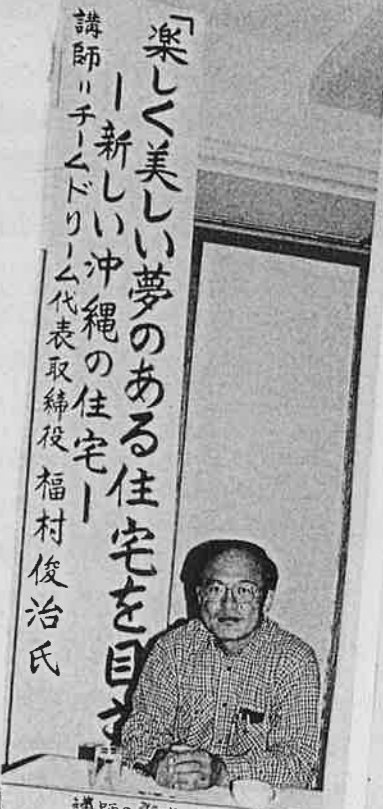 「楽しく美しい夢のある住宅を目さ
ー新しい沖縄の住宅ー
講師=チームドリーム代表取締役 福村俊治氏
講師の